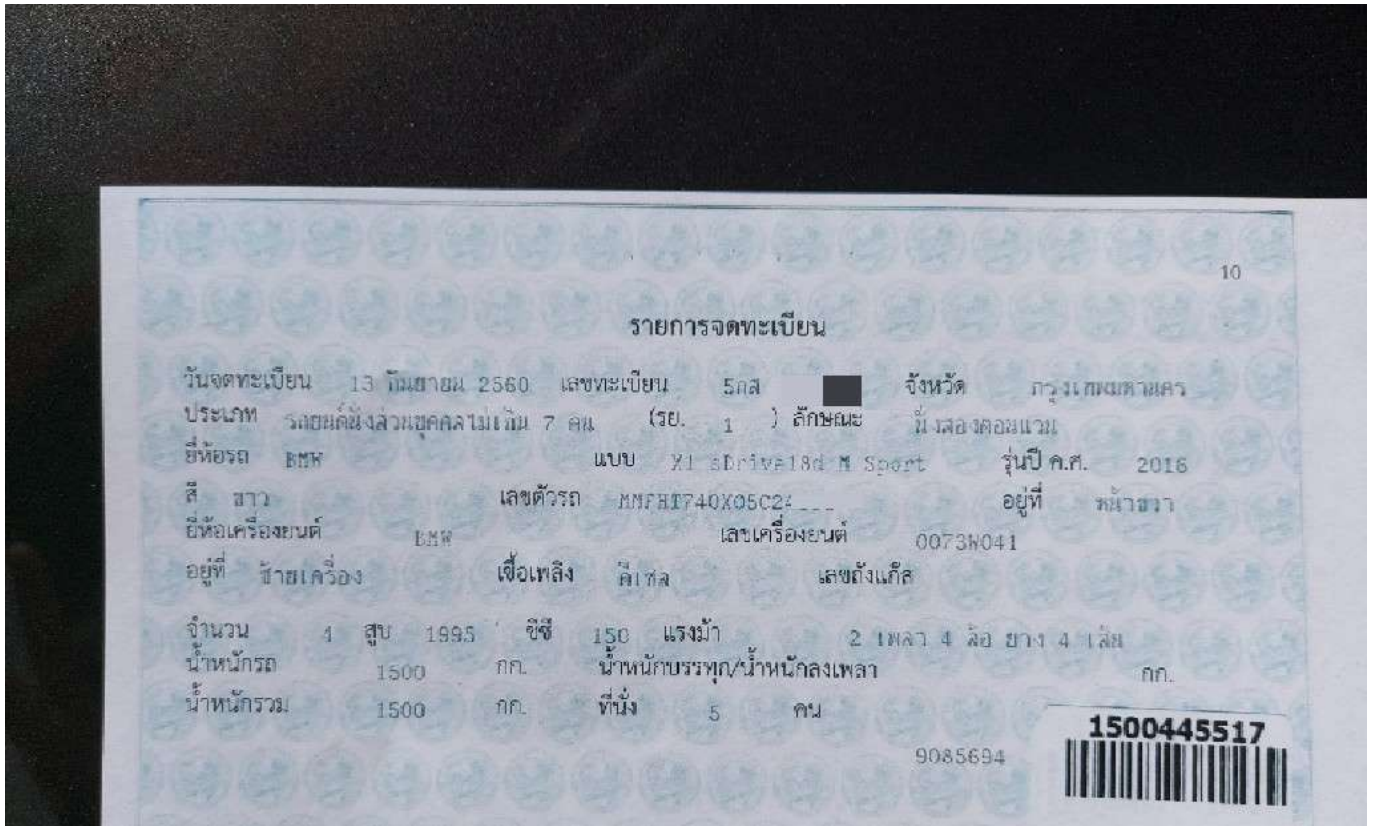 10
รายการจดทะเบียน
วันจดทะเบียน 13 กันยายน 2560 เลขทะเบียน 5กส จังหวัด กรุงเทพมหานคร
ประเภท รถยนต์นั่งส่วนบุคคลไม่เกิน 7 คน (รย. 1 ) ลักษณะ นั่งสองตอนแวน
ยี่ห้อรถ BMW แบบ X1 sDrive18d M Sport รุ่นปี ค.ศ. 2016
สี ขาว เลขตัวรถ อยู่ที่ หน้าขวา
ยี่ห้อเครื่องยนต์ BMW เลขเครื่องยนต์ 0073W041
อยู่ที่ ซ้ายเครื่อง เชื้อเพลิง ดีเซล เลขถังแก๊ส
จำนวน 4 สูบ 1995 ซีซี 150 แรงม้า 2 เพลา 4 ล้อ ยาง 4 เส้น
น้ำหนักรถ 1500 กก. น้ำหนักบรรทุก/น้ำหนักลงเพลา กก.
น้ำหนักรวม 1500 กก. ที่นั่ง 5 คน
1500445517
9085694